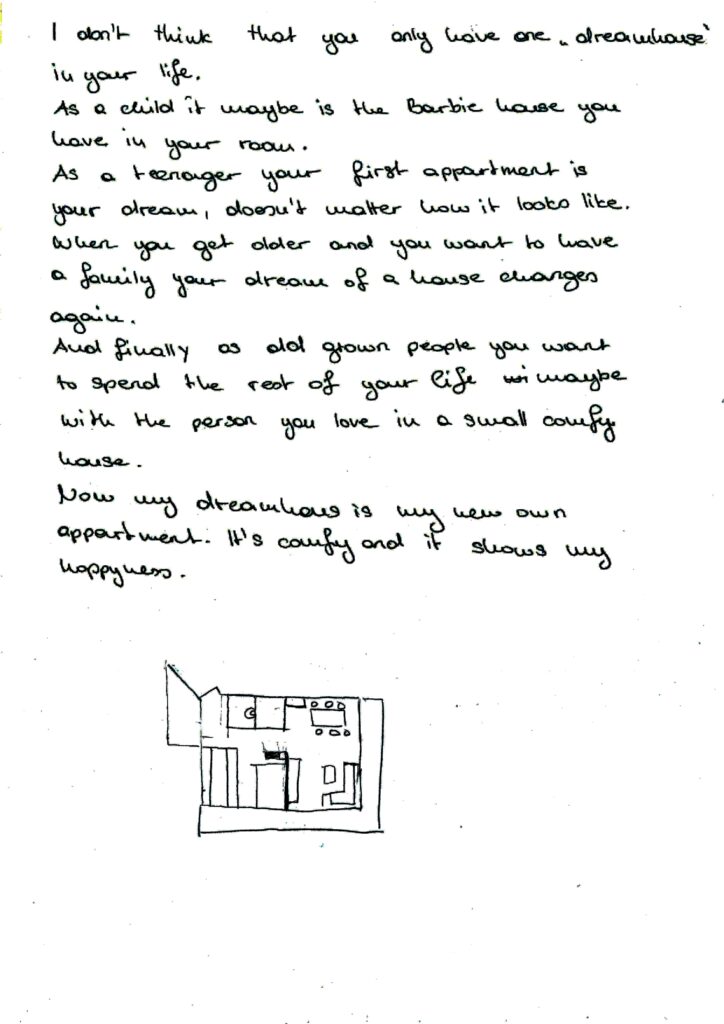 I don't think that you only have one „dreamhouse"
in your life.
As a child it maybe is the Barbie house you
have in your room.
As a teenager your first appartment is
your dream, doesn't matter how it looks like.
When you get older and you want to have
a family your dream of a house changes
again.
And finally as old grown people you want
to spend the rest of your life maybe
with the person you love in a small comfy
house.
Now my dreamhous is my new own
appartment. It's comfy and it shows my
happyness.